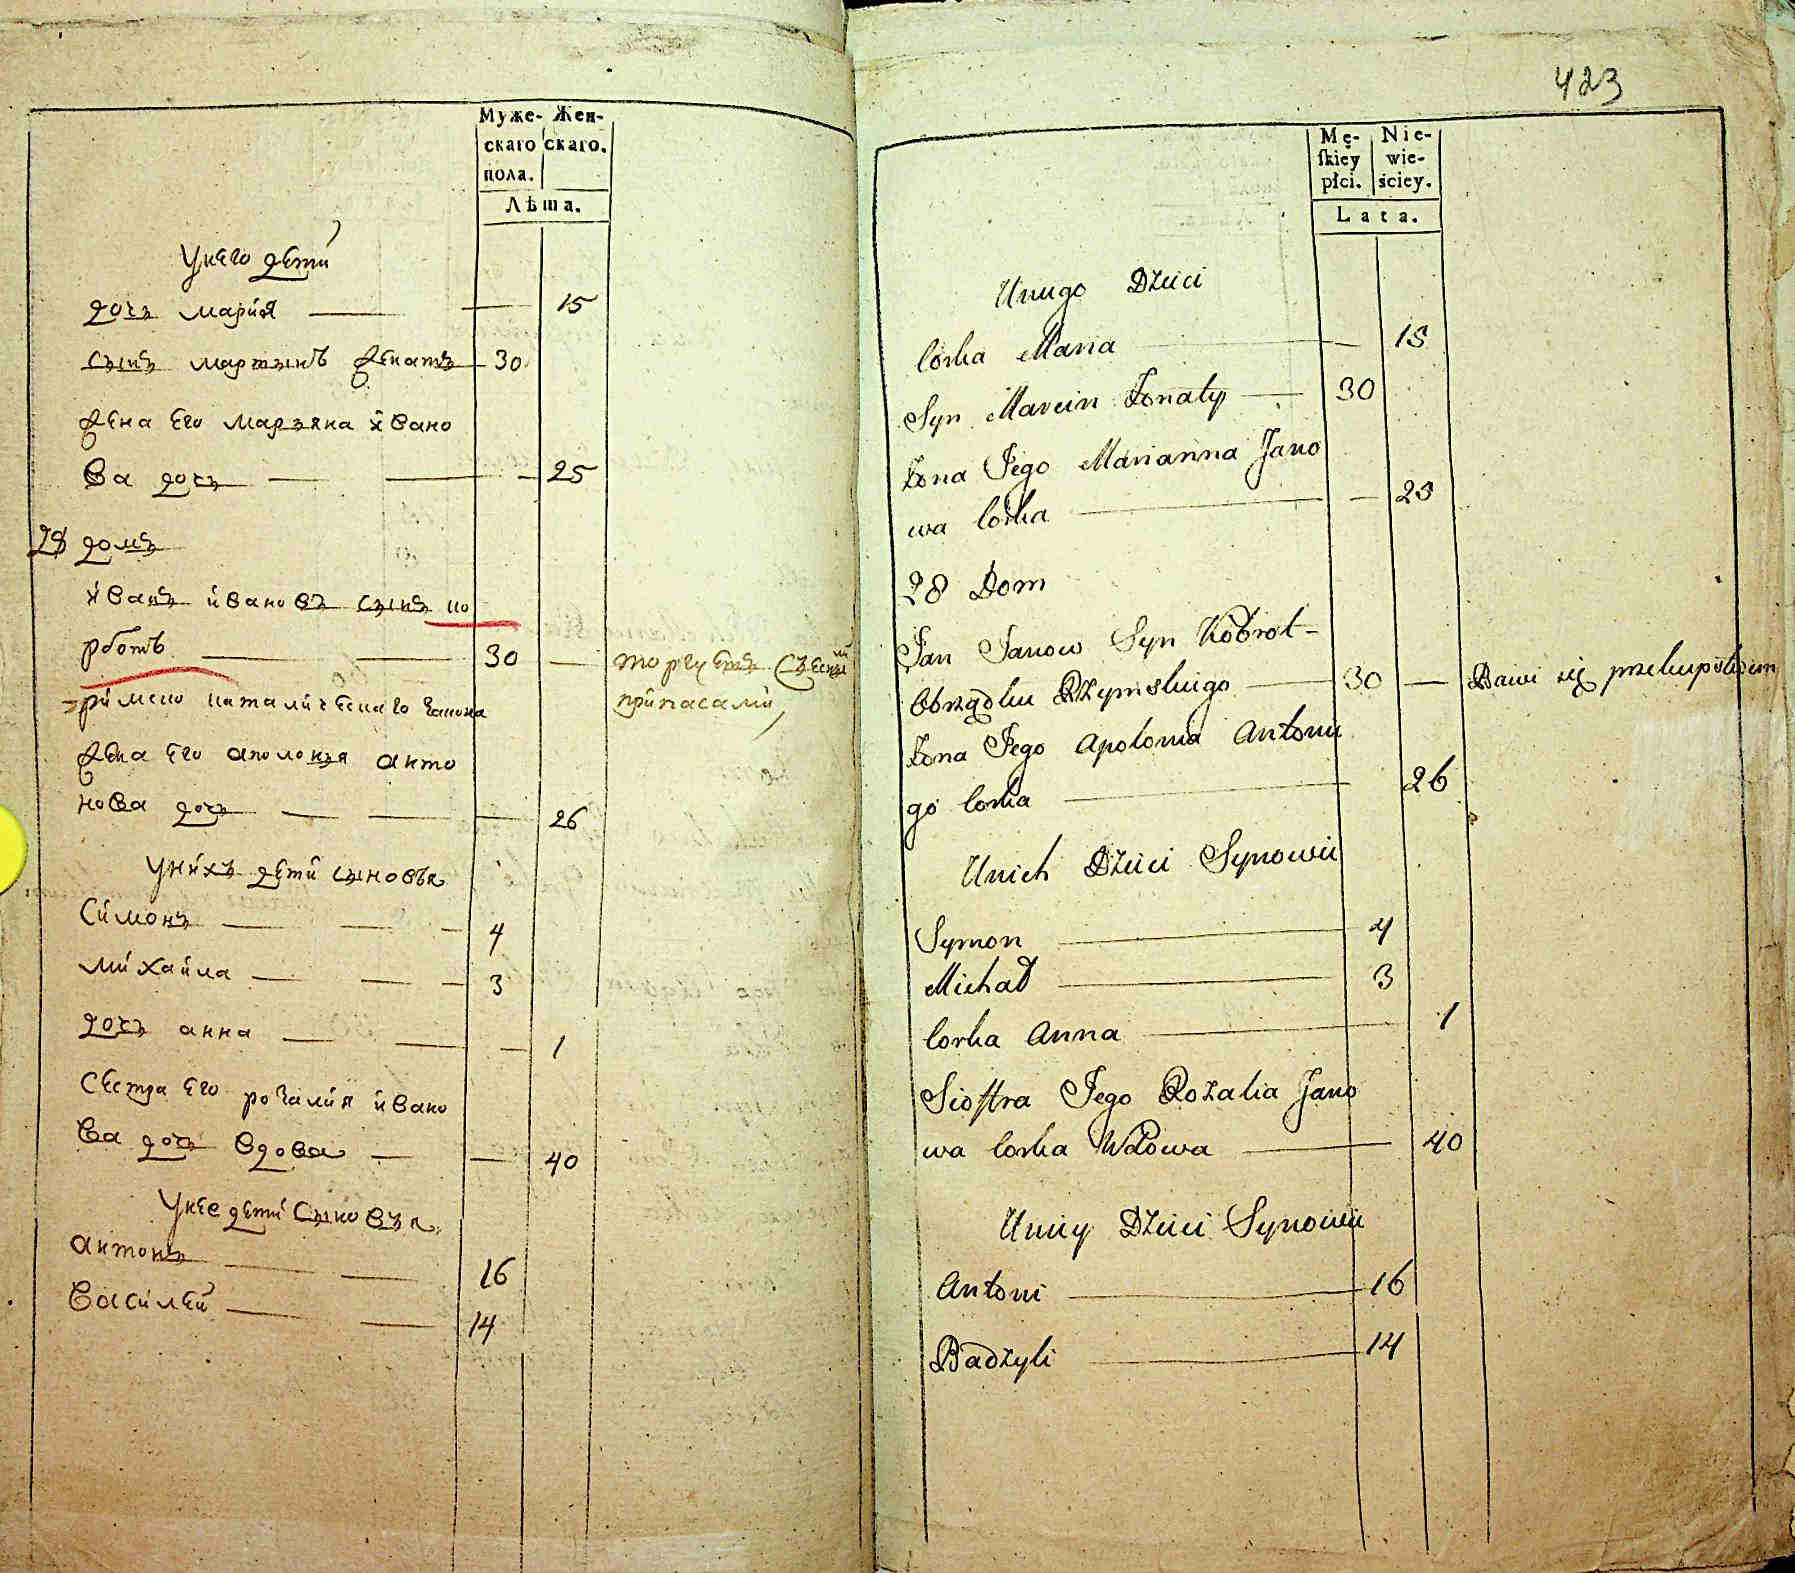 Муже- Жен-
скаго скаго.
пола.
Лѣта.
Унего дети
дочъ мария 15
сынъ мартынъ женатъ 30
жена его марьяна ивано
ва дочъ 25
28 домъ
иванъ ивановъ сынъ ко
рботъ 30 торгуетъ съесны
римско католическаго закона припасами
жена его аполонья анто
нова дочъ 26
Унихъ дети сыновья
Симонъ 4
михайла 3
дочъ анна 1
Сестра его розалия ивано
ва дочъ вдова 40
Унее дети сыновья
антонъ 16
василей 14
423
Mę- Nie-
ſkiey wie-
płci. ściey.
Lata.
Uniego Dzieci
Corka Maria 15
Syn Marcin Żonaty 30
Żona Jego Marianna Jano
wa Corka 25
28 Dom
Jan Janow Syn Kobrot-
Obrządku Rzymskiego 30 Bawi się przekupstwem
Żona Jego Apolonia Antonie
go Corka 26
Unich Dzieci Synowie
Symon 4
Michał 3
Corka Anna 1
Sioſtra Jego Rozalia Jano
wa Corka Wdowa 40
Uniey Dzieci Synowie
Antoni 16
Badzyli 14